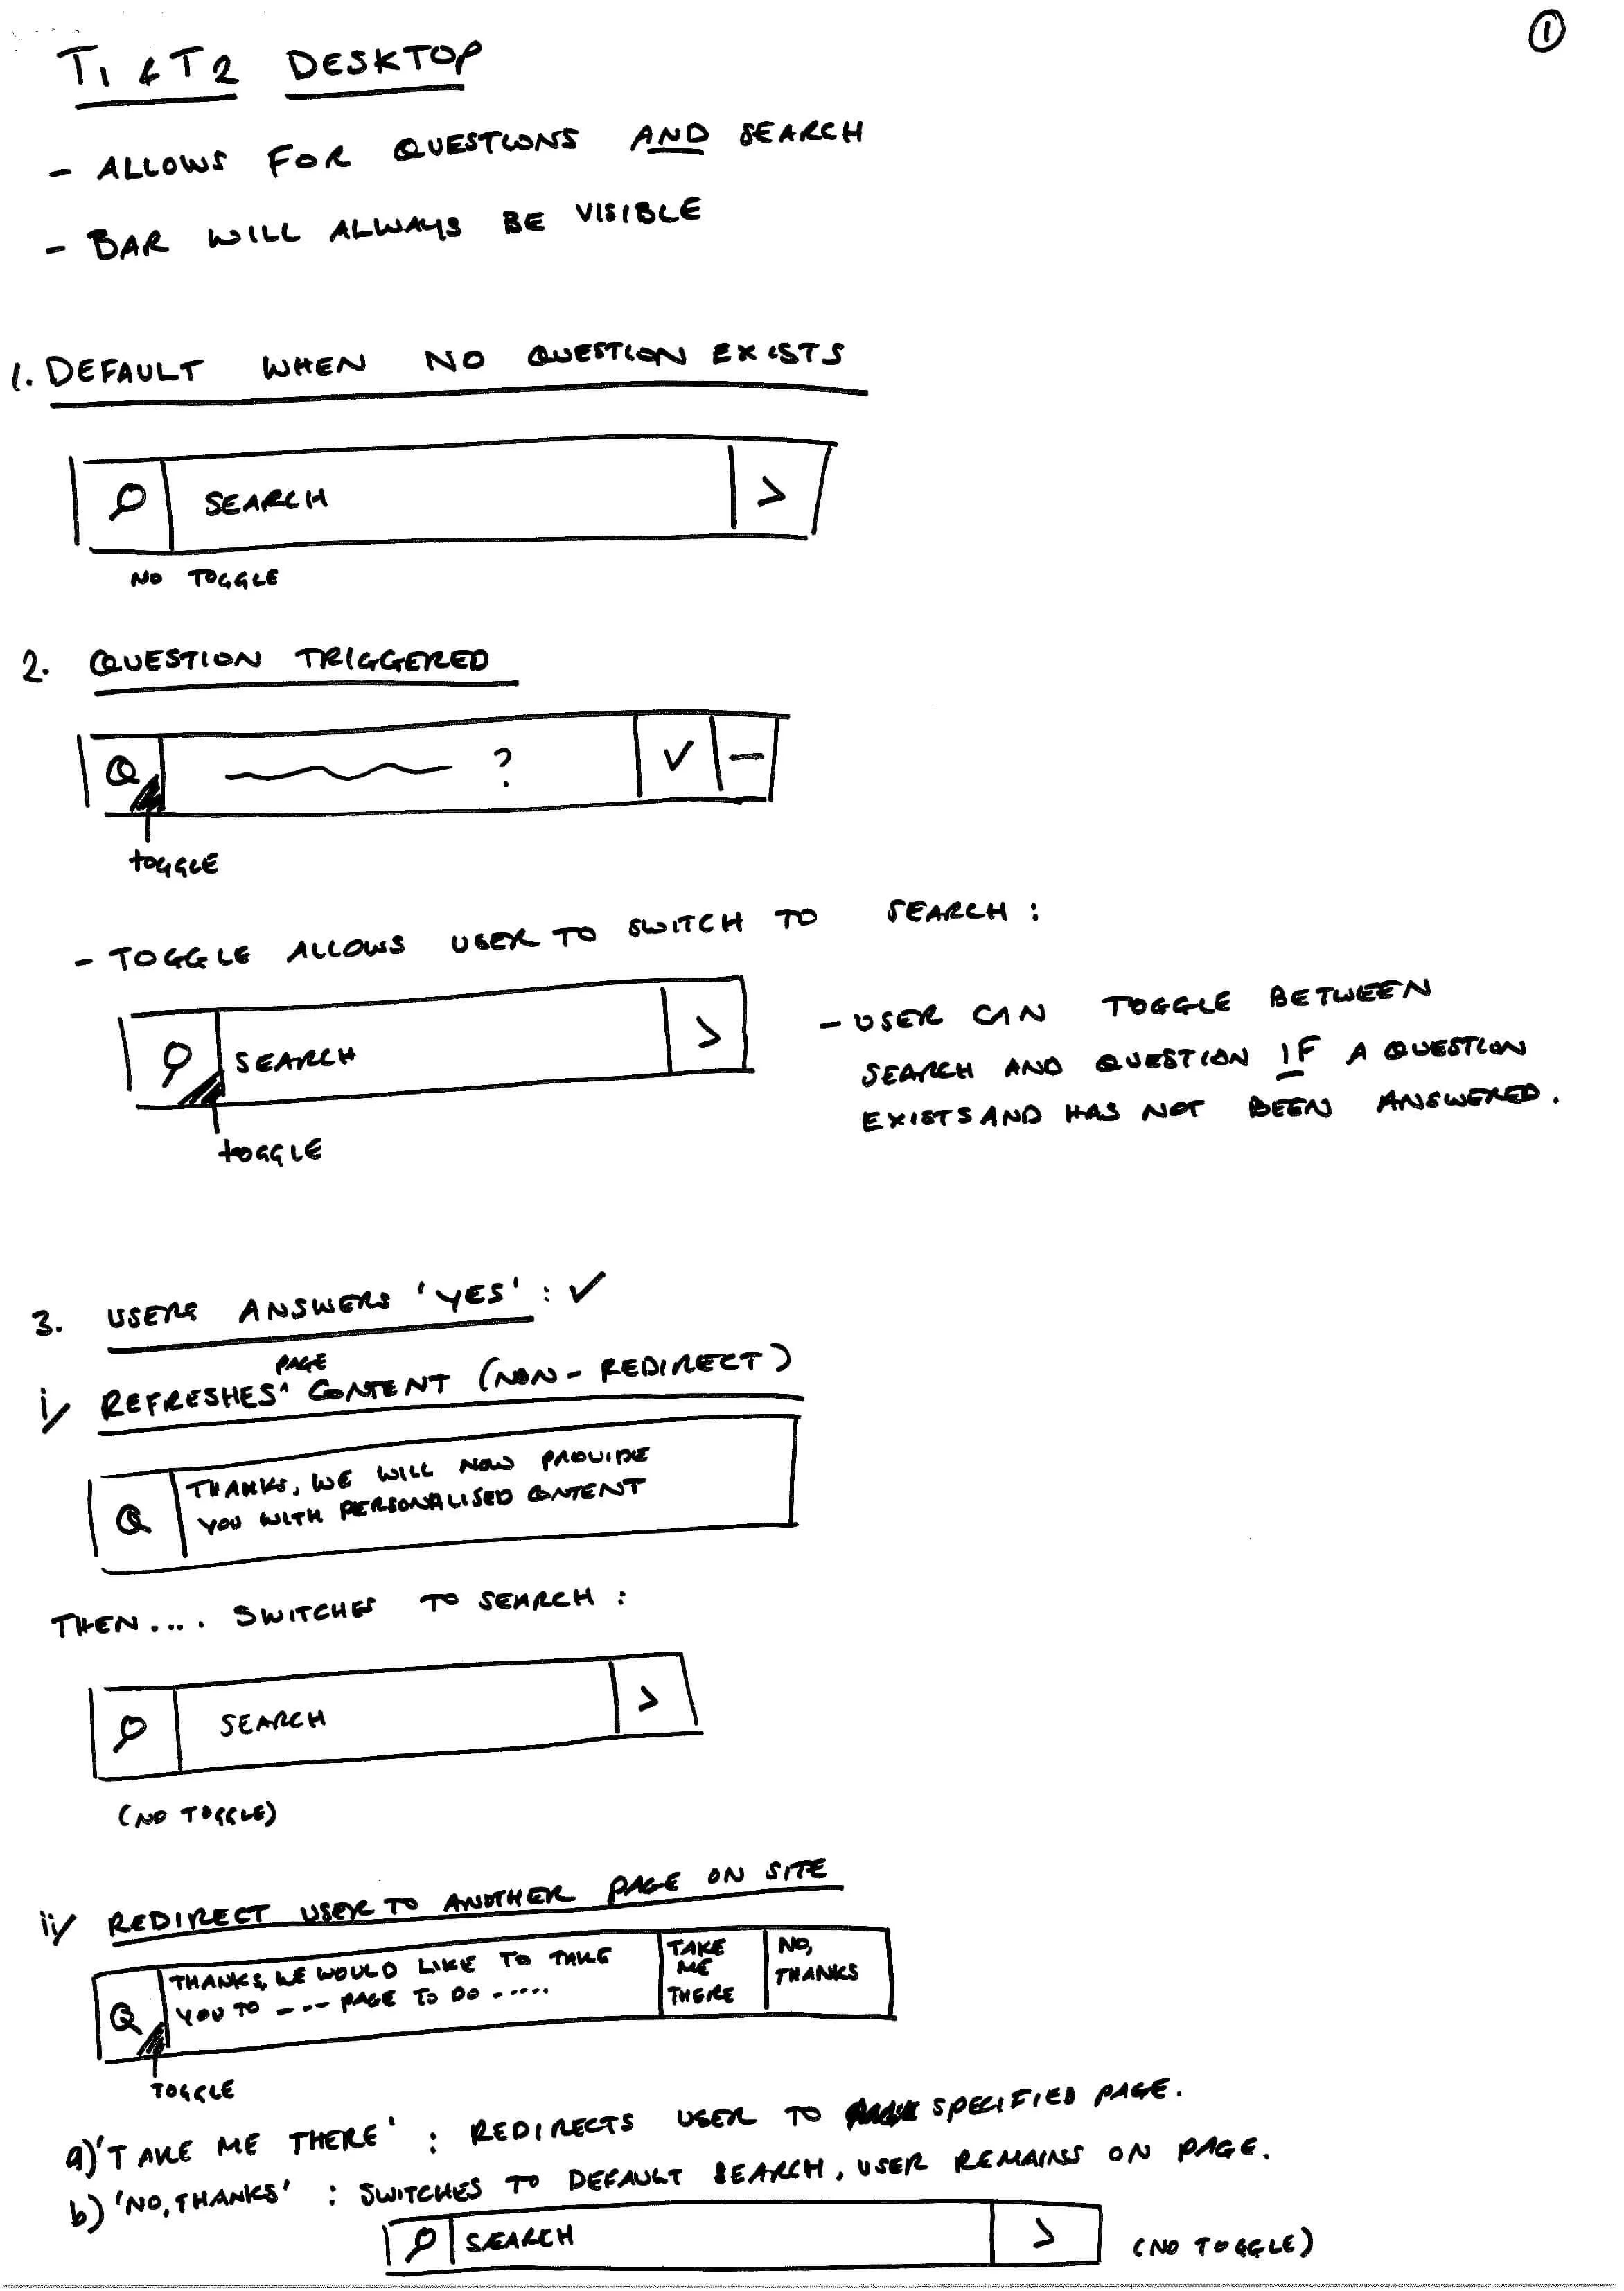 1
T1 & T2 DESKTOP
- ALLOWS FOR QUESTIONS AND SEARCH
- BAR WILL ALWAYS BE VISIBLE
1. DEFAULT WHEN NO QUESTION EXISTS
SEARCH >
NO TOGGLE
2. QUESTION TRIGGERED
Q ? ✓ —
TOGGLE
- TOGGLE ALLOWS USER TO SWITCH TO SEARCH:
SEARCH >
TOGGLE
- USER CAN TOGGLE BETWEEN
SEARCH AND QUESTION IF A QUESTION
EXISTS AND HAS NOT BEEN ANSWERED.
3. USERS ANSWERS 'YES': ✓
i/ REFRESHES ^PAGE CONTENT (NON-REDIRECT)
Q THANKS, WE WILL NOW PROVIDE
YOU WITH PERSONALISED CONTENT
THEN.... SWITCHES TO SEARCH:
SEARCH >
(NO TOGGLE)
ii/ REDIRECT USER TO ANOTHER PAGE ON SITE
Q THANKS, WE WOULD LIKE TO TAKE
YOU TO ---- PAGE TO DO -----
TAKE
ME
THERE
NO,
THANKS
TOGGLE
a) 'TAKE ME THERE' : REDIRECTS USER TO SPECIFIED PAGE.
b) 'NO, THANKS' : SWITCHES TO DEFAULT SEARCH, USER REMAINS ON PAGE.
SEARCH > (NO TOGGLE)